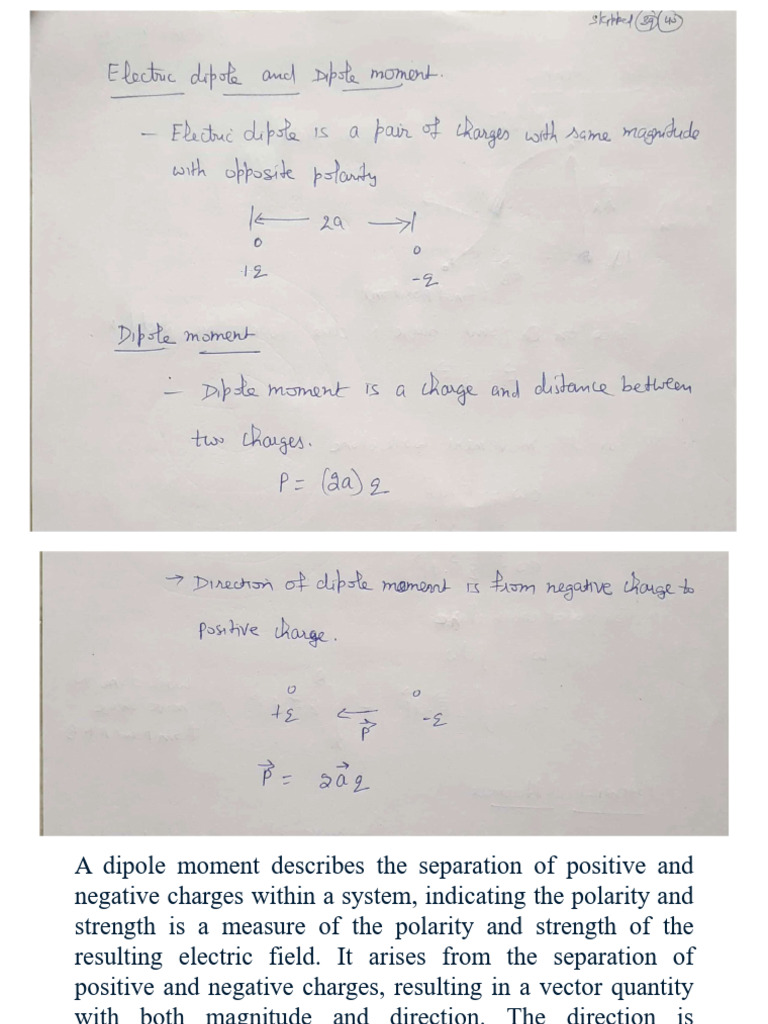 skipped (39) (40)
Electric dipole and Dipole moment.
- Electric dipole is a pair of charges with same magnitude
with opposite polarity
|← 2a →|
o o
+q -q
Dipole moment
÷ Dipole moment is a charge and distance between
two charges.
P = (2a) q
→ Direction of dipole moment is from negative charge to
positive charge.
o o
+q ← -q
P⃗
P⃗ = 2a⃗q
A dipole moment describes the separation of positive and
negative charges within a system, indicating the polarity and
strength is a measure of the polarity and strength of the
resulting electric field. It arises from the separation of
positive and negative charges, resulting in a vector quantity
with both magnitude and direction. The direction is